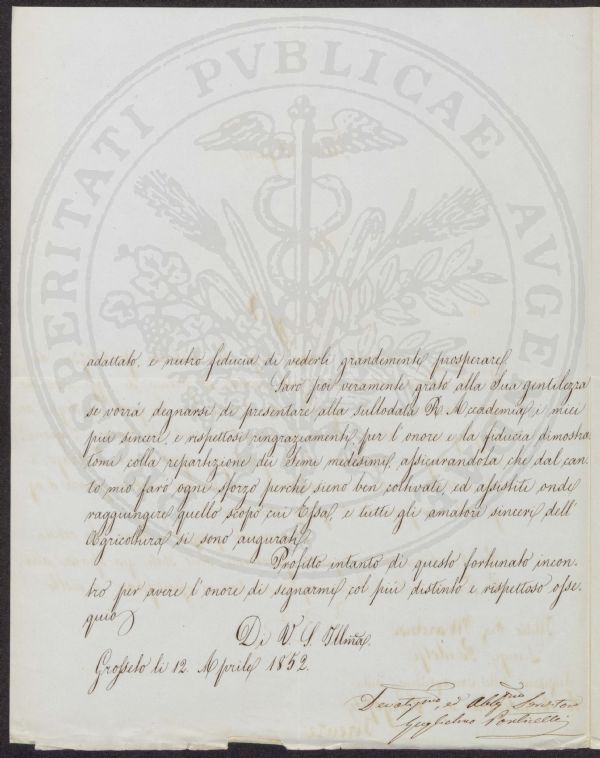 PROSPERITATI PVBLICAE AVGE
adattato, e nutro fiducia di vederli grandemente prosperare.
Sarò poi veramente grato alla Sua gentilezza
se vorrà degnarsi di presentare alla sullodata R. Accademia i miei
più sinceri, e rispettosi ringraziamenti per l'onore e la fiducia dimostra-
tomi colla repartizione dei semi medesimi, assicurandola che dal can-
to mio farò ogni sforzo perchè sieno ben coltivati, ed assistiti onde
raggiungere quello scopo cui Essa, e tutti gli amatori sinceri dell'
Agricoltura si sono augurati.
Profitto intanto di questo fortunato incon-
tro per avere l'onore di segnarmi col più distinto e rispettoso osse-
quio
Di V. S. Illma.
Grosseto li 12. Aprile 1852.
Devotismo, ed Obblgmo Servitore
Guglielmo Ponticelli